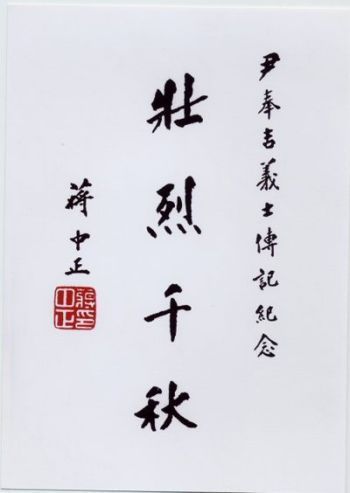 尹奉吉義士傳記紀念
壯烈千秋
蔣中正
蔣中正印